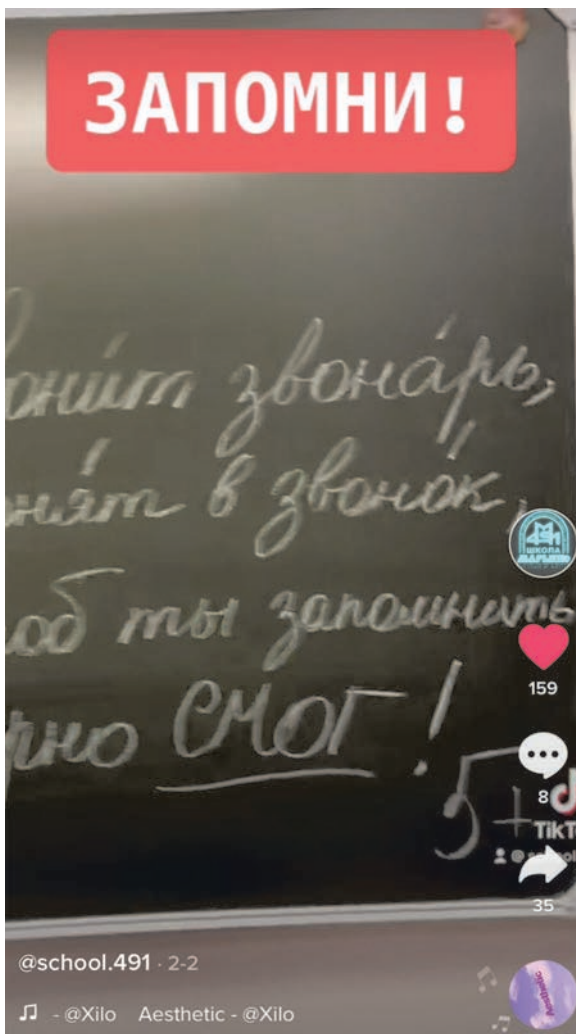 ЗАПОМНИ!
онит звонарь,
нят в звонок,
об ты запомнить
рно СМОГ!
5+
ШКОЛА
МАРЬИНО
159
8
TikT
35
@school.491 · 2-2
- @Xilo Aesthetic - @Xilo
Aesthetic